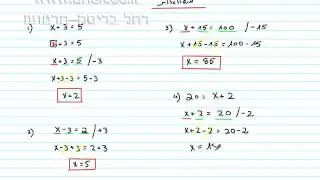 1) x+3=5
x+3=5 /-3
x+3-3=5-3
x=2
2) x-3=2 /+3
x-3+3=2+3
x=5
3) x+15=100 /-15
x+15-15=100-15
x=85
4) 20=x+2
x+2=20 /-2
x+2-2=20-2